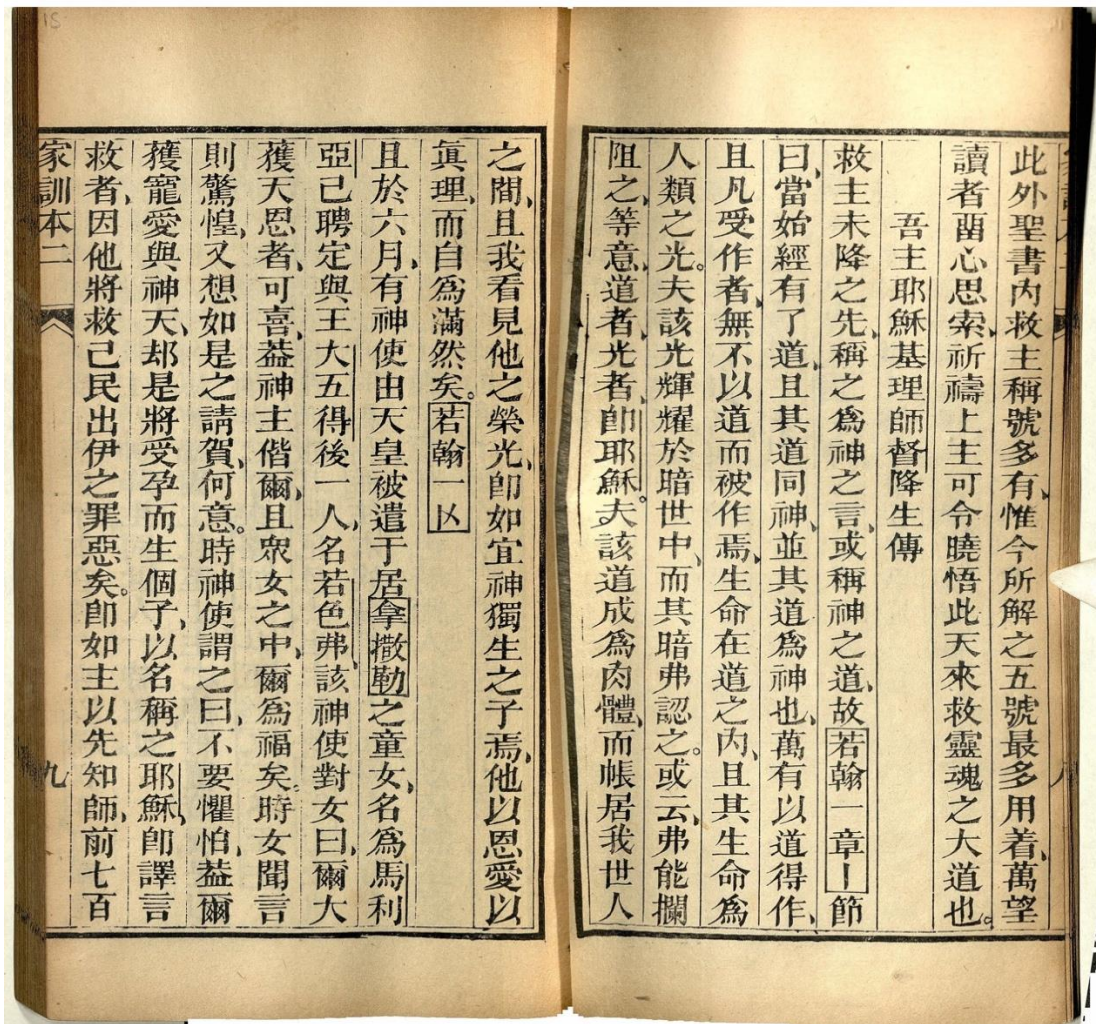 此外聖書內救主稱號多有、惟今所解之五號最多用着、萬望
讀者留心思索、祈禱上主可令曉悟此天來救靈魂之大道也。
吾主耶穌基理師督降生傳
救主未降之先、稱之爲神之言、或稱神之道、故若翰一章〡節
曰、當始經有了道、且其道同神、並其道爲神也、萬有以道得作、
且凡受作者、無不以道而被作焉、生命在道之內、且其生命爲
人類之光。夫該光輝耀於暗世中、而其暗弗認之。或云、弗能攔
阻之、等意、道者、光者、卽耶穌。夫該道成爲肉體、而帳居我世人
之間、且我看見他之榮光、卽如宜神獨生之子焉、他以恩愛以
眞理、而自爲滿然矣。若翰一〤
且於六月、有神使由天皇被遣于居拿撒勒之童女、名爲馬利
亞己聘定與王大五得後一人、名若色弗、該神使對女曰、爾大
獲天恩者、可喜、葢神主偕爾、且眾女之中、爾爲福矣。時女聞言
則驚惶、又想如是之請賀、何意。時神使謂之曰、不要懼怕、葢爾
獲寵愛與神天、却是將受孕而生個子、以名稱之耶穌、卽譯言
救者、因他將救己民出伊之罪惡矣。卽如主以先知師、前七百
家訓本二
九